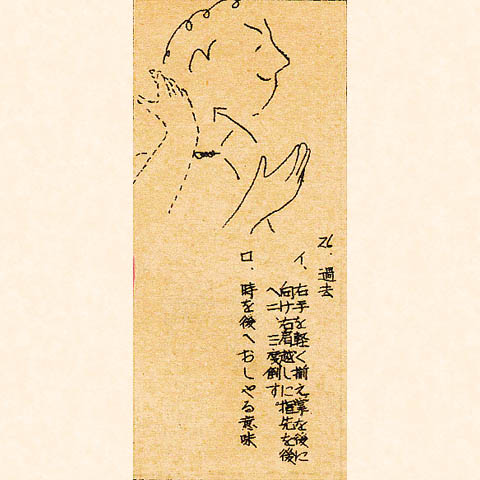 26. 過去
イ、右手を軽く揃え掌を後に
向け右肩越しに指先を後
へ二、三度倒す。
ロ、時を後へおしやる意味